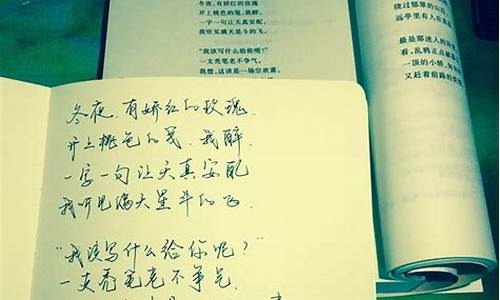 冬夜，有娇红的玫瑰
开上桃色的笺，我醉，
一字一句让天真安配，
我听见满天星斗的飞。
“我该写什么给你呢？”
一支秃笔老不争气。
我想，这该是一场空欢喜。
绕过郁翠的山
里有人在
最是那迷人的
看，乱鸦正点破
一顶的小轿，
又赶着前路的
冬夜，有娇红的玫瑰，
开上桃色的笺，我醉，
一字一句让天真安配
我听见满天星斗的飞．
“我该写什么给你呢？”
一支秃笔老不争气．